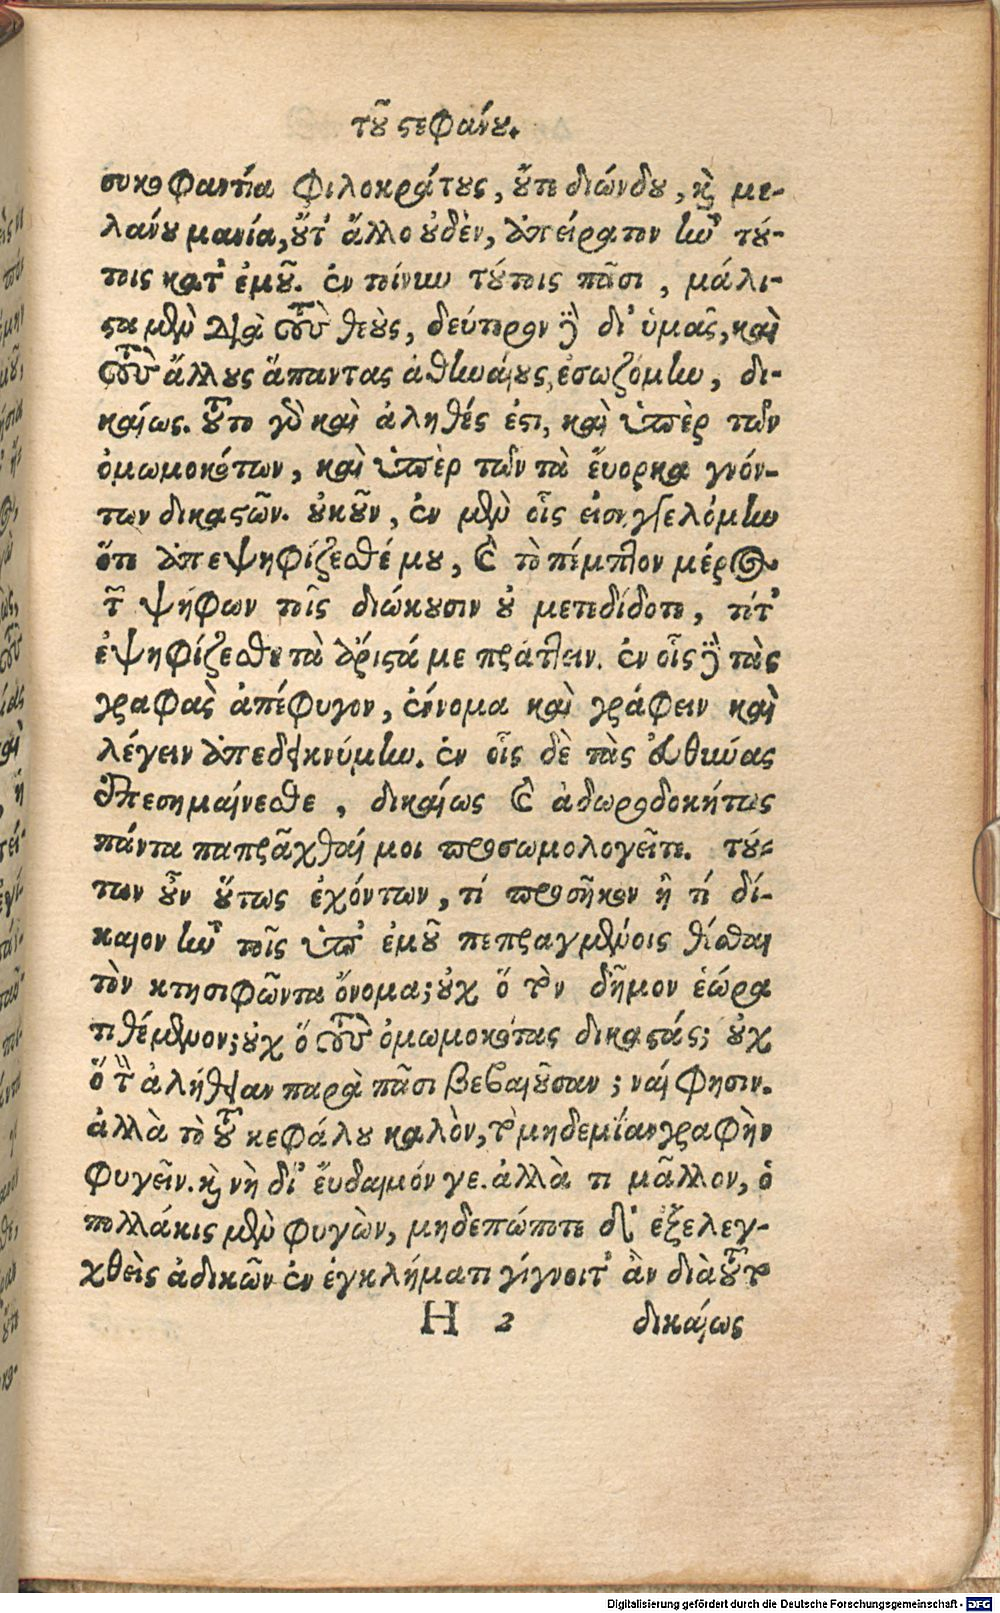 τοῦ στεφάνου.
συκοφαντία Φιλοκράτους, οὔτε διώνδου, καὶ με-
λάνου μανία, οὔτ' ἄλλο οὐδὲν, ἀπείρατον ἦν τού-
τοις κατ' ἐμοῦ. ἐν τοίνυν τούτοις πᾶσι, μάλι-
στα μὲν διὰ τοὺς θεοὺς, δεύτερον δὲ δι' ὑμᾶς, καὶ
τοὺς ἄλλους ἅπαντας ἀθηναίους, ἐσωζόμην, δι-
καίως. τοῦτο γὰρ καὶ ἀληθές ἐστι, καὶ ὑπὲρ τῶν
ὀμωμοκότων, καὶ ὑπὲρ τῶν τὰ εὔορκα γνόν-
των δικαστῶν. οὐκοῦν, ἐν μὲν οἷς εἰσηγγελόμην
ὅτε ἀπεψηφίζεσθέ μου, καὶ τὸ πέμπτον μέρος
τῶν ψήφων τοῖς διώκουσιν οὐ μετεδίδοτε, τότ'
ἐψηφίζεσθε τὰ ἄριστά με πράττειν. ἐν οἷς δὲ τὰς
γραφὰς ἀπέφυγον, ἔννομα καὶ γράφειν καὶ
λέγειν ἀπεδεικνύμην. ἐν οἷς δὲ τὰς εὐθύνας
ἐπεσημαίνεσθε, δικαίως καὶ ἀδωροδοκήτως
πάντα πεπρᾶχθαί μοι προσωμολογεῖτε. τού-
των οὖν οὕτως ἐχόντων, τί προσῆκον ἢ τί δί-
καιον ἦν τοῖς ὑπ' ἐμοῦ πεπραγμένοις θέσθαι
τὸν κτησιφῶντα ὄνομα; οὐχ ὃ τὸν δῆμον ἑώρα
τιθέμενον; οὐχ ὃ τοὺς ὀμωμοκότας δικαστάς; οὐχ
ὃ τὴν ἀλήθειαν παρὰ πᾶσι βεβαιοῦσαν; ναί φησιν.
ἀλλὰ τὸ τοῦ κεφάλου καλὸν, τὸ μηδεμίαν γραφὴν
φυγεῖν. καὶ νὴ δί' εὔδαιμόν γε. ἀλλὰ τι μᾶλλον, ὁ
πολλάκις μὲν φυγὼν, μηδεπώποτε δ' ἐξελεγ-
χθεὶς ἀδικῶν ἐν ἐγκλήματι γίγνοιτ' ἂν διὰ τοῦτο
H 2 δικαίως
Digitalisierung gefördert durch die Deutsche Forschungsgemeinschaft - DFG